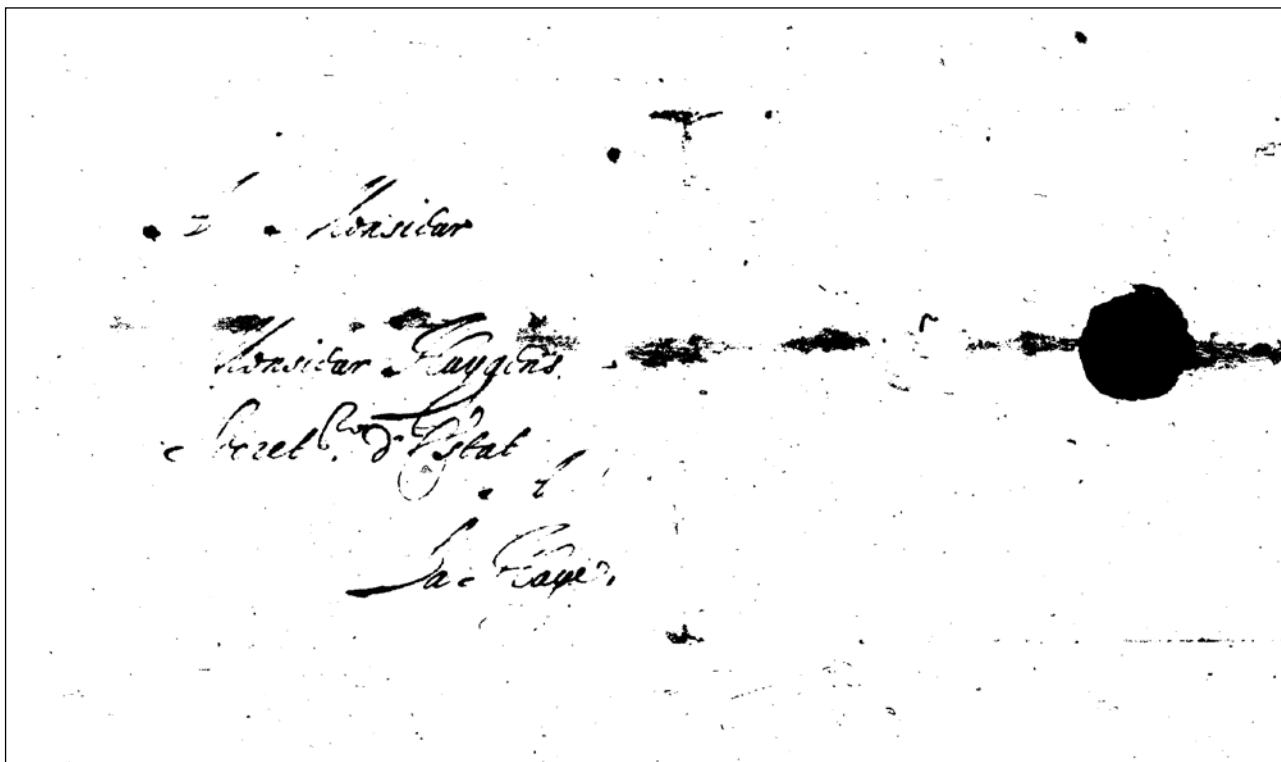 A Monsieur
Monsieur Huygens
Secret.re d'Estat
A
La Haye.